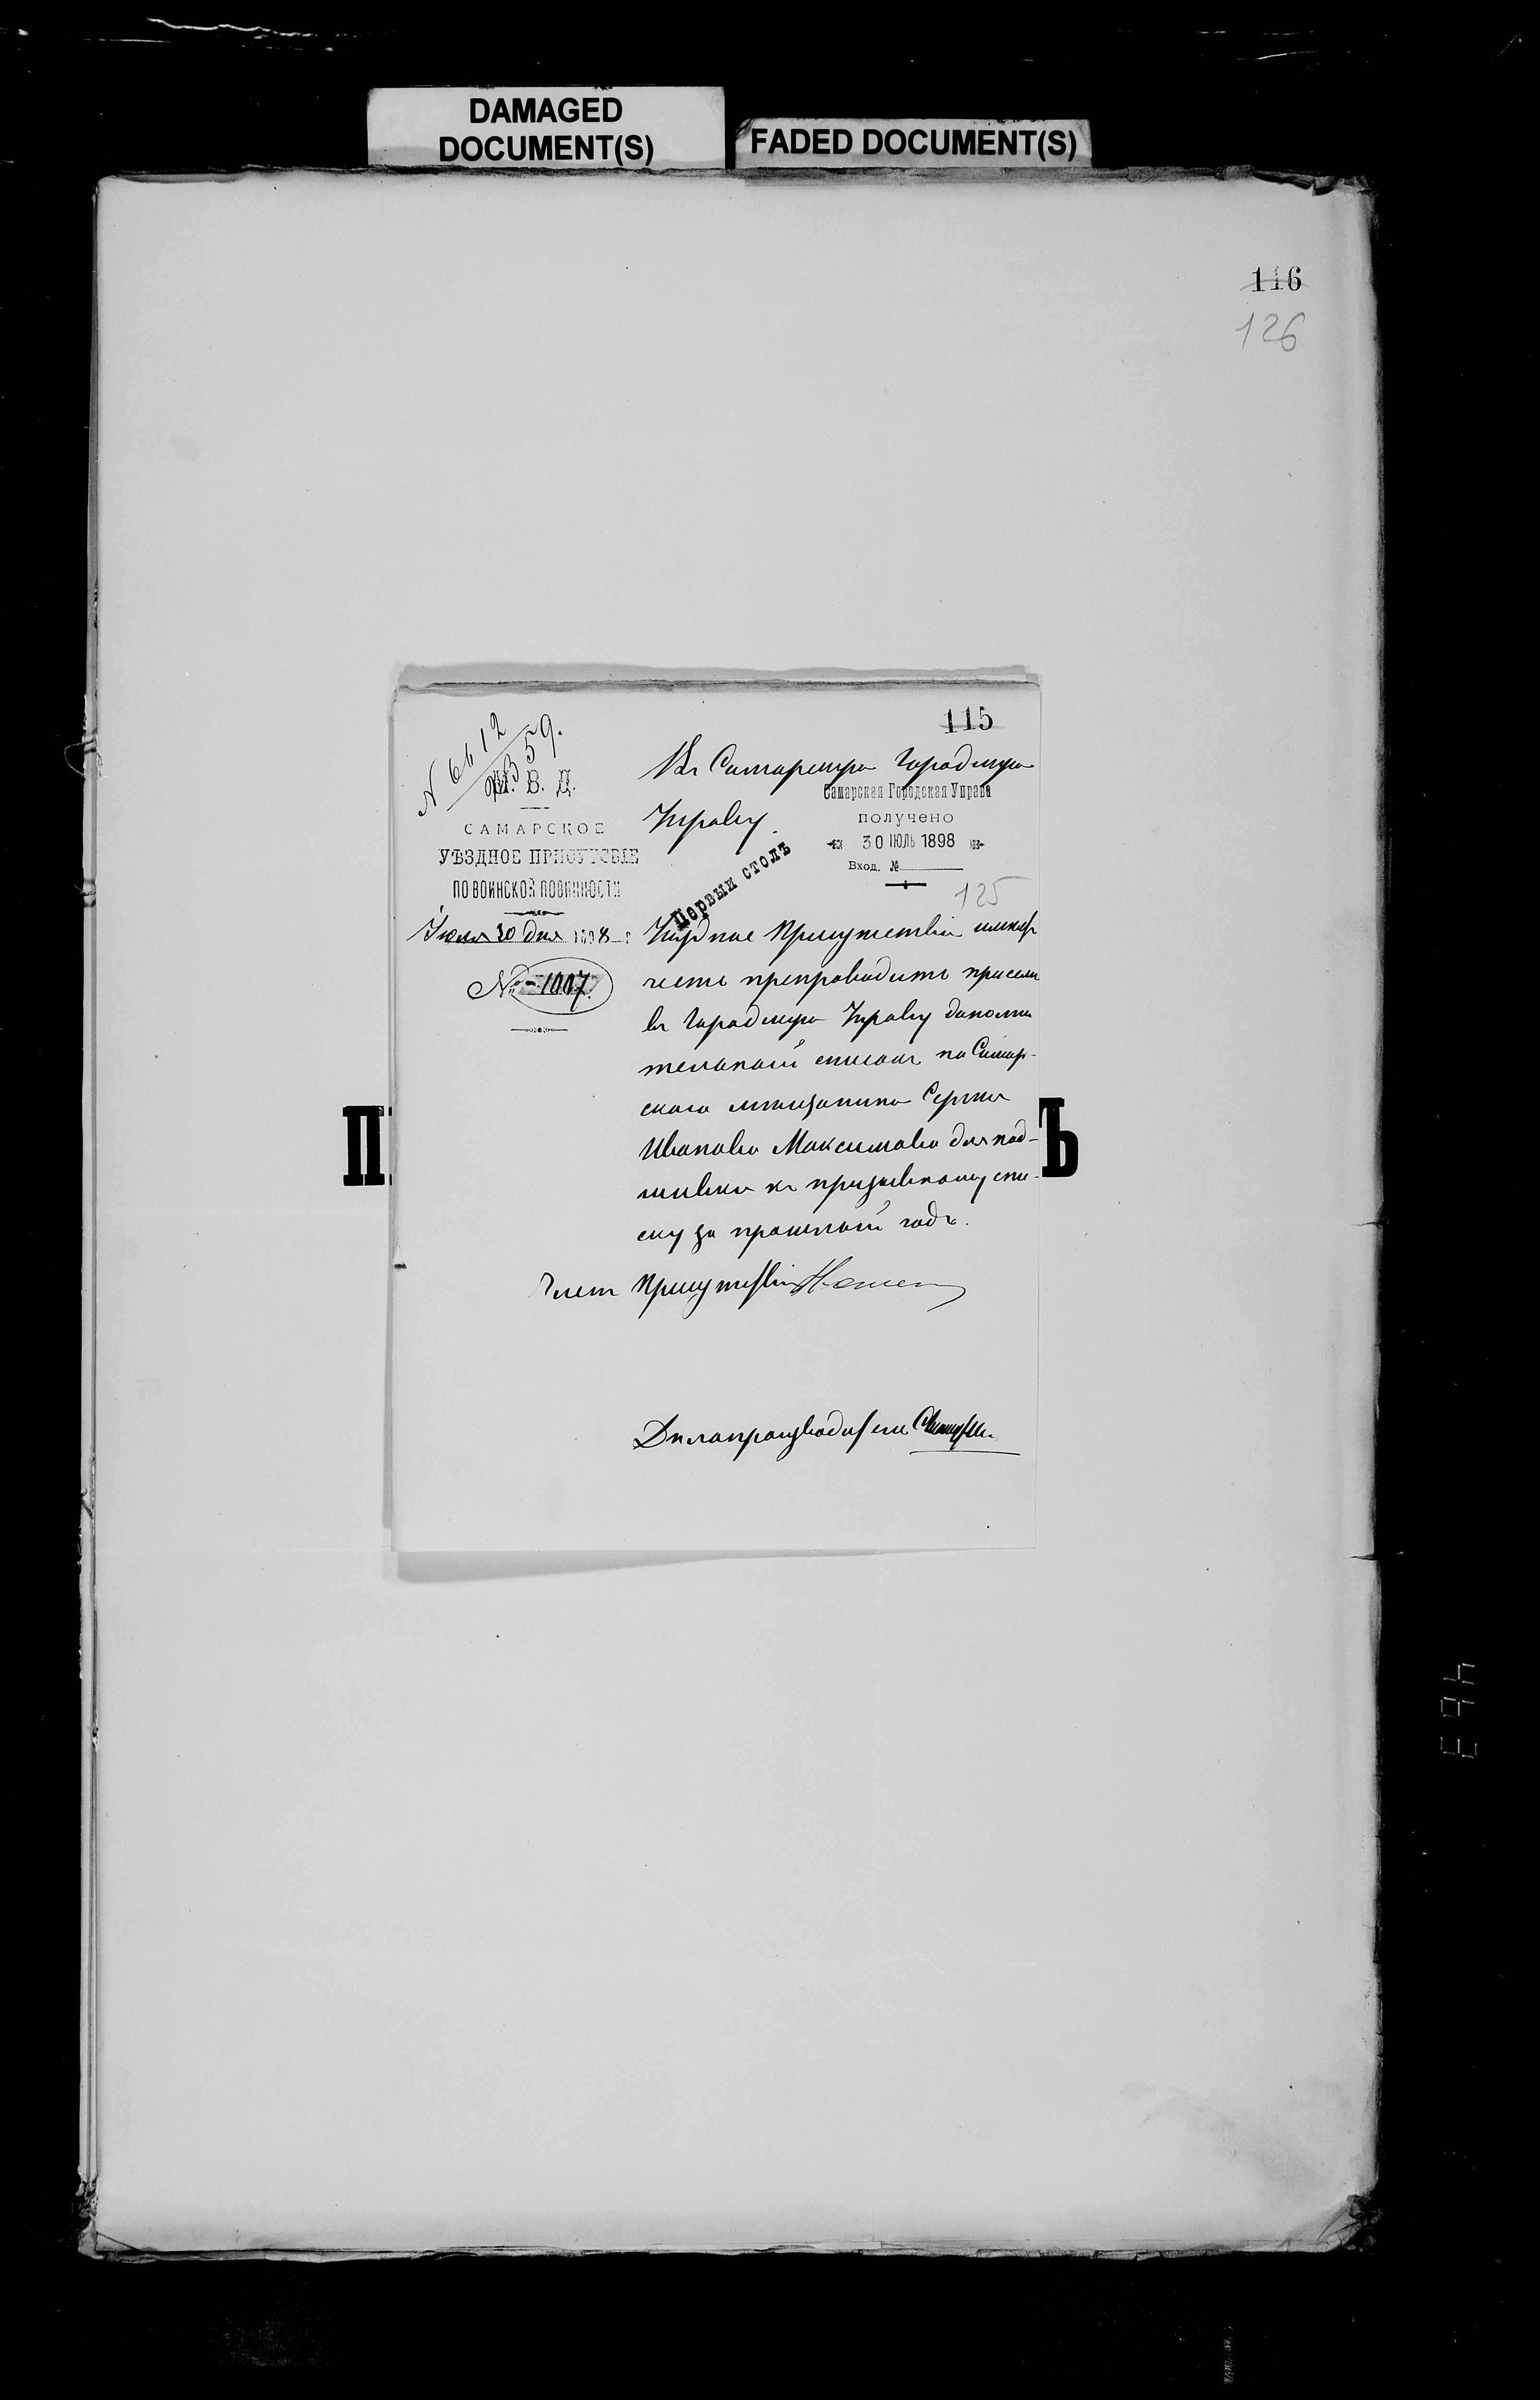 DAMAGED
DOCUMENT(S)
FADED DOCUMENT(S)
116
126
115
N 6612
359.
М. В. Д.
САМАРСКОЕ
УѢЗДНОЕ ПРИСУТСТВІЕ
ПО ВОИНСКОЙ ПОВИННОСТИ
Іюля 30 дня 1898 г
№ 1007.
Въ Самарскую Городскую
Управу.
Самарская Городская Управа
получено
30 ІЮЛЬ 1898
Вход. №
Первый столъ
125
Уѣздное Присутствіе имѣетъ
честь препроводить при семъ
въ Городскую Управу дополни
тельный списокъ на Самар-
скаго мѣщанина Сергѣя
Иванова Максимова для под-
шивки къ призывному спи-
ску за прошлый годъ.
Членъ Присутствія
Дѣлопроизводитель
П
Ъ